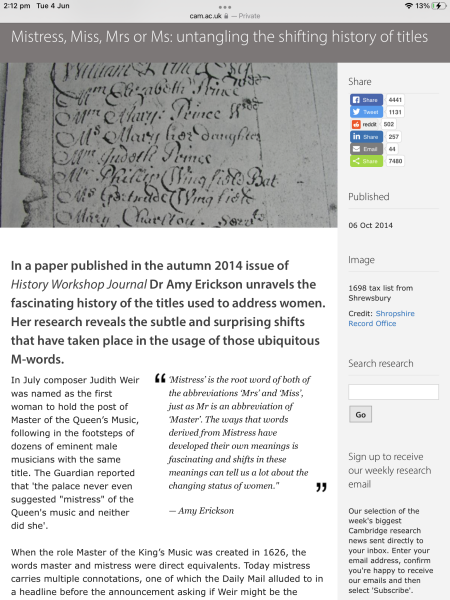 2:12 pm Tue 4 Jun
cam.ac.uk — Private
13%
Mistress, Miss, Mrs or Ms: untangling the shifting history of titles
Mrs Elizabeth Prince
Mary Prince
Mary her daughter
Judeth Prince
Phillip Wingfield Bat
Gartrude Wingfield
Mary Charlton
In a paper published in the autumn 2014 issue of
History Workshop Journal Dr Amy Erickson unravels the
fascinating history of the titles used to address women.
Her research reveals the subtle and surprising shifts
that have taken place in the usage of those ubiquitous
M-words.
In July composer Judith Weir
was named as the first
woman to hold the post of
Master of the Queen's Music,
following in the footsteps of
dozens of eminent male
musicians with the same
title. The Guardian reported
that 'the palace never even
suggested "mistress" of the
Queen's music and neither
did she'.
“
'Mistress' is the root word of both of
the abbreviations 'Mrs' and 'Miss',
just as Mr is an abbreviation of
'Master'. The ways that words
derived from Mistress have
developed their own meanings is
fascinating and shifts in these
meanings can tell us a lot about the
changing status of women."
”
— Amy Erickson
When the role Master of the King's Music was created in 1626, the
words master and mistress were direct equivalents. Today mistress
carries multiple connotations, one of which the Daily Mail alluded to in
a headline before the announcement asking if Weir might be the
Share
Share 4441
Tweet 1131
reddit 502
Share 257
Email 44
Share 7480
Published
06 Oct 2014
Image
1698 tax list from
Shrewsbury
Credit: Shropshire
Record Office
Search research
Go
Sign up to receive
our weekly research
email
Our selection of the
week's biggest
Cambridge research
news sent directly to
your inbox. Enter your
email address, confirm
you're happy to receive
our emails and then
select 'Subscribe'.